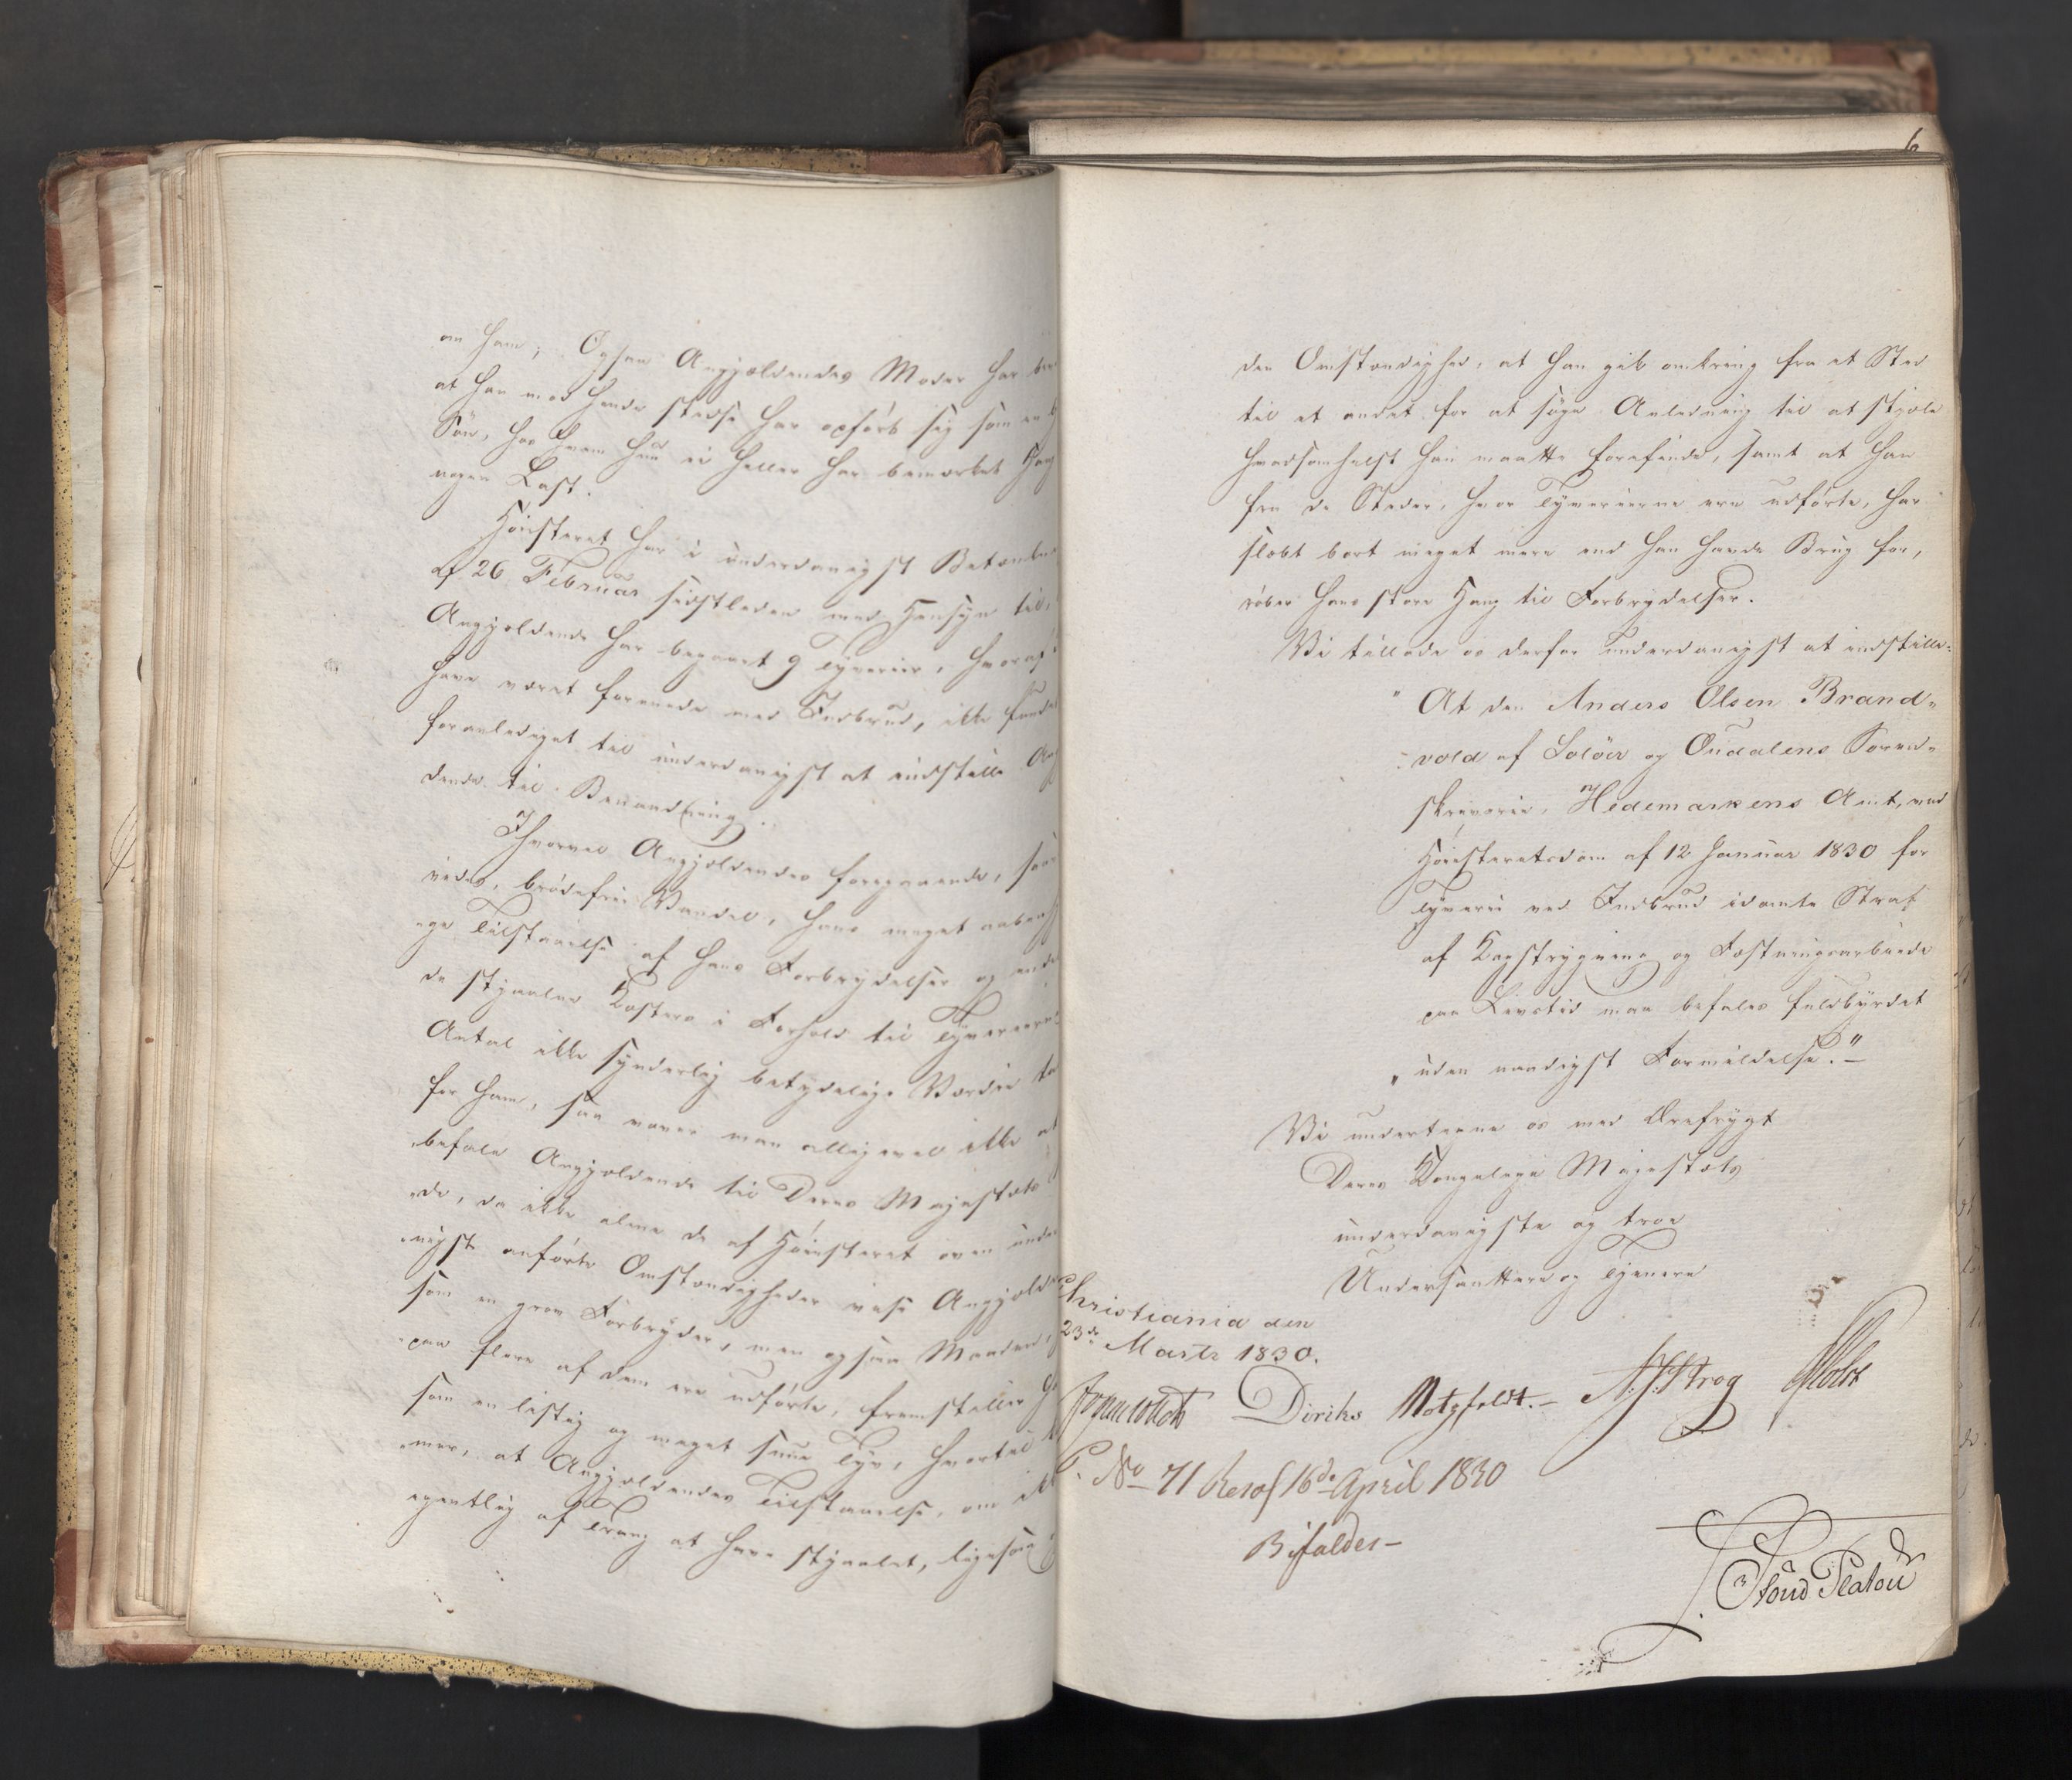 om ham; Ogsaa Angjeldendes Moder har
at han mod hende stedse har opført sig som en
Søn, hos hvem hun ei heller har bemærket Hang
nogen Last.
Høiesteret har i underdanigst Betænkn
af 26 Februar sidstleden med Hensyn til,
Angjeldende har begaaet 9 Tyverier, hvoraf
have været forenede med Indbrud, ikke funde
foranlediget til underdanigst at indstille Ang
dende til Benaadning.
Ihvorvel Angjeldendes foregaaende, saa
vides, brødefrie Vandel, hans meget aaben
ge Tilstaaelse af hans Forbrydelser og
de stjaalne Kosters i Forhold til Tyveriernes
Antal ikke synderlig betydelige Værdie ta
for ham, saa vover man alligevel ikke at
befale Angjeldende til Deres Majestæts
de, da ikke alene de af Høiesteret oven under
nigst anførte Omstændigheder vise Angjeld
som en grov Forbryder, men ogsaa Maaden,
paa flere af dem ere udførte, fremstiller h
som en listig og meget snue Tyv, hvortil
mer, at Angjeldendes Tilstaaelse, om ikk
egentlig af Trang at have stjaalet, ligesom
6
den Omstændighed, at han gik omkring fra et Sted
til et andet for at søge Anledning til at stjæle
hvadsomhelst han maatte forefinde, samt at han
fra de Steder, hvor Tyverierne ere udførte, har
slæbt bort meget mere end han havde Brug for,
røber hans store Hang til Forbrydelser.
Vi tillade os derfor underdanigst at indstille:
" At den Anders Olsen Brand-
vold af Soløer og Oudalens Soren-
skriverie, Hedemarkens Amt, ved
Høiesteretsdom af 12 Januar 1830 for
Tyverie ved Indbrud idømte Straf
af Kagstrygning og Fæstningsarbeide
paa Livstid maa befales fuldbyrdet
uden naadigst Formildelse."
Vi undertegne os med Ærefrygt
Deres Kongelige Majestæts
underdanigste og troe
Undersaatter og Tjenere
Christiania den
23de Marts 1830.
Diriks Motzfeldt. Krog Holst
P. No 71 Resol 16de April 1830
Bifaldes
Stoud Platou